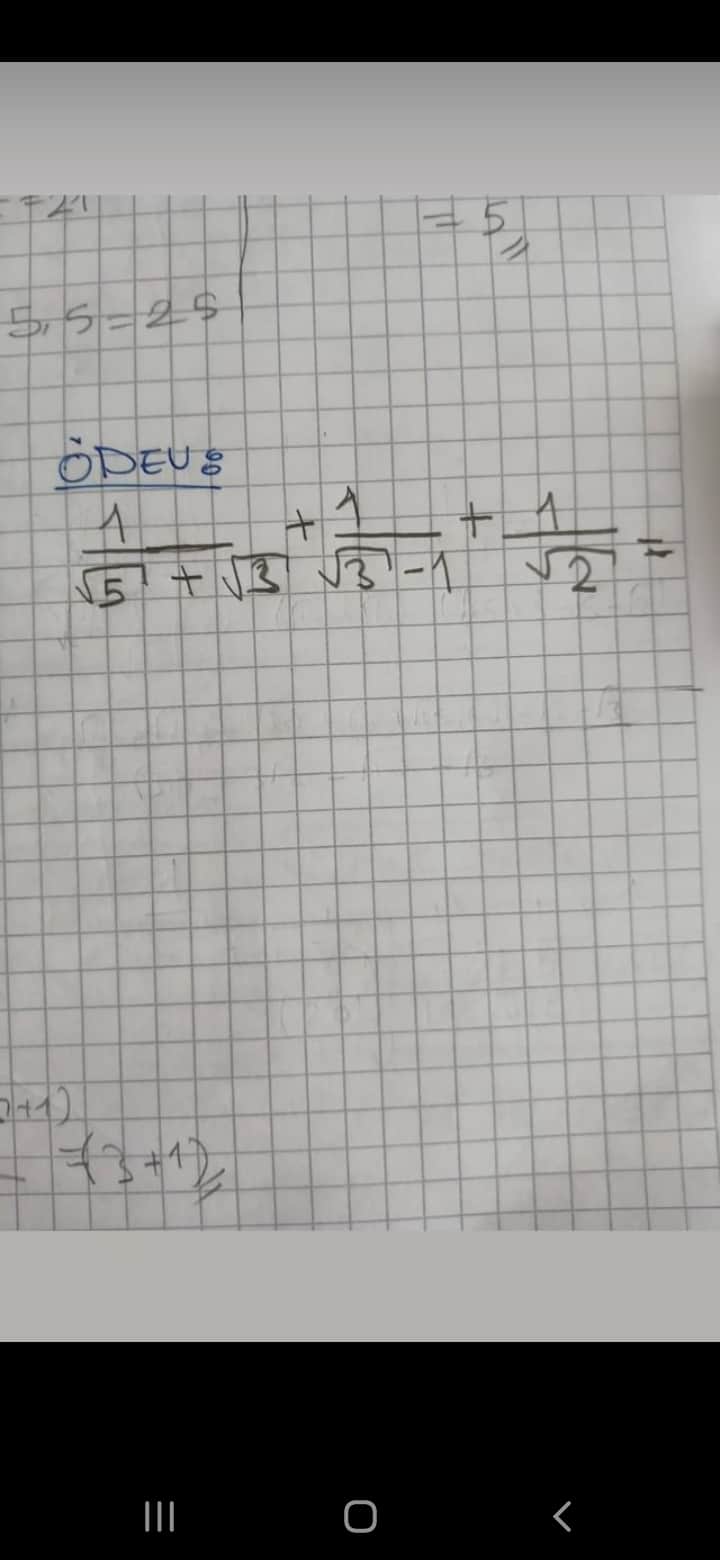 = 21
= 5
5.5 = 25
ÖDEV:
1/(√5 + √3) + 1/(√3 - 1) + 1/√2 =
+1)
(3+1)